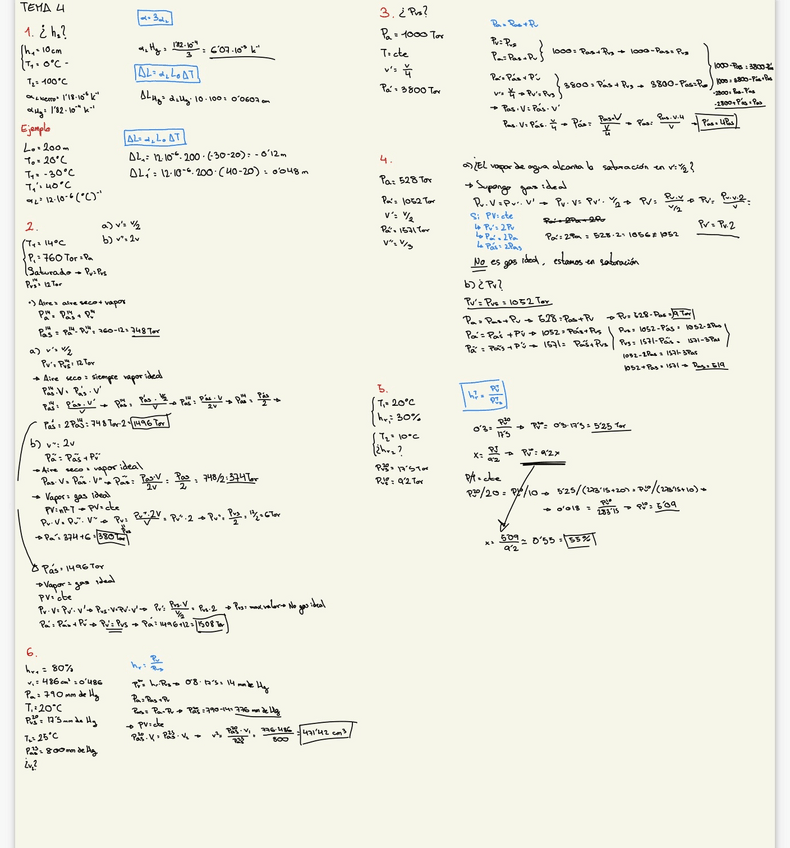 TEMA 4
1. ¿h₂?
h₁ = 10cm
T₁ = 0°C -
T₂ = 100°C
α Hg = 1'82·10⁻⁴ k⁻¹
α = 3αL
αL Hg = 1'82·10⁻⁴/3 = 6'07·10⁻⁵ k⁻¹
ΔL = αL L₀ ΔT
ΔL Hg = αL Hg · 10 · 100 = 0'0607 cm
Ejemplo
L₀ = 200m
T₀ = 20°C
T₁ = -30°C
T₁' = 40°C
αL = 12·10⁻⁶ (°C)⁻¹
ΔL = αL L₀ ΔT
ΔL = 12·10⁻⁶ · 200 · (-30-20) = -0'12m
ΔL' = 12·10⁻⁶ · 200 · (40-20) = 0'048m
2.
T₁ = 14°C
P₁ = 760 Tor = Pa
Saturado → Pv = Pvs
Pvs¹⁴ = 12 Tor
a) v' = v/2
b) v'' = 2v
·) Aire = aire seco + vapor
Pa¹⁴ = Pas¹⁴ + Pv¹⁴
Pas¹⁴ = Pa¹⁴ - Pv¹⁴ = 760-12 = 748 Tor
a) v' = v/2
Pv' = Pvs¹⁴ = 12 Tor
→ Aire seco = siempre vapor ideal
Pas¹⁴·V = Pas'·V'
Pas' = 2Pas = 748 Tor·2 = 1496 Tor
b) v'' = 2v
Pa'' = Pas'' + Pv''
→ Aire seco = vapor ideal
Pas·V = Pas''·V'' → Pas'' = Pas·V/2v = Pas/2 = 748/2 = 374 Tor
→ Vapor = gas ideal
PV = nRT → PV = cte
→ Pa'' = 374 + 6 = 380 Tor
Pas' = 1496 Tor
→ Vapor = gas ideal
PV = cte
Pv·V = Pv'·V' → Pvs·V = Pv'·V' → Pv' = Pvs·V/(V/2) = Pvs·2 → Pvs = max valor → No gas ideal
Pa' = Pas' + Pv' → Pv' = Pvs → Pa' = 1496+12 = 1508 Tor
3. ¿Pvs?
Pa = 1000 Tor
T = cte
v' = v/4
Pa' = 3800 Tor
Pa = Pas + Pv
Pv = Pvs
Pa = Pas + Pv
1000 = Pas + Pvs → 1000 - Pas = Pvs
Pa' = Pas' + Pv'
v' = v/4 → Pv' = Pvs
3800 = Pas' + Pvs → 3800 - Pas' = Pvs
→ Pas·V = Pas'·V'
Pas·V = Pas'·V/4 → Pas' = Pas·V/(V/4) → Pas' = Pas·V·4/V → Pas' = 4Pas
4.
Pa = 528 Tor
Pa' = 1052 Tor
V' = V/2
Pa'' = 1571 Tor
V'' = V/3
a) ¿El vapor de agua alcanza la saturación en v' = v/2?
→ Supongo gas ideal
Pv·V = Pv'·V' → Pv·V = Pv'·V/2 → Pv' = Pv·V/(V/2) → Pv' = Pv·V·2/V
Pv' = Pv·2
Si PV = cte
↳ Pv' = 2Pv
↳ Pa' = 2Pa
↳ Pas' = 2Pas
Pa' = 2Pa = 528·2 = 1056 ≠ 1052
No es gas ideal, estamos en saturación
b) ¿Pv?
Pa = Pas + Pv → 528 = Pas + Pv → Pv = 528 - Pas = 9 Tor
Pa' = Pas' + Pv' → 1052 = Pas' + Pvs
Pa'' = Pas'' + Pv'' → 1571 = Pas'' + Pvs
Pvs = 1052 - Pas' = 1052 - 2Pas
Pvs = 1571 - Pas'' = 1571 - 3Pas
1052 - 2Pas = 1571 - 3Pas
5.
T₁ = 20°C
hr₁ = 30%
T₂ = 10°C
¿hr₂?
Pvs²⁰ = 17'5 Tor
Pvs¹⁰ = 9'2 Tor
hr = Pv/Pvs
0'3 = Pv²⁰/17'5 → Pv²⁰ = 0'3·17'5 = 5'25 Tor
x = Pv/9'2 → Pv¹⁰ = 9'2x
P/T = cte
Pv²⁰/20 = Pv¹⁰/10 → 5'25/(273'15+20) = Pv¹⁰/(273'15+10) →
→ 0'018 = Pv¹⁰/283'15 → Pv¹⁰ = 5'09
x = 5'09/9'2 ≈ 0'55 = 55%
6.
hr₁ = 80%
v₁ = 486 cm³ = 0'486
Pa = 790 mm de Hg
T₁ = 20°C
Pvs²⁰ = 17'5 mm de Hg
T₂ = 25°C
Pas²⁵ = 800 mm de Hg
¿v₂?
hr = Pv/Pvs
Pv²⁰ = hr·Pvs → 0'8·17'5 = 14 mm de Hg
Pa = Pas + Pv
Pas = Pa - Pv → Pas²⁰ = 790-14 = 776 mm de Hg
→ PV = cte
Pas²⁰·V₁ = Pas²⁵·V₂ → V₂ = Pas²⁰·V₁/Pas²⁵ = 776·486/800 = 471'42 cm³